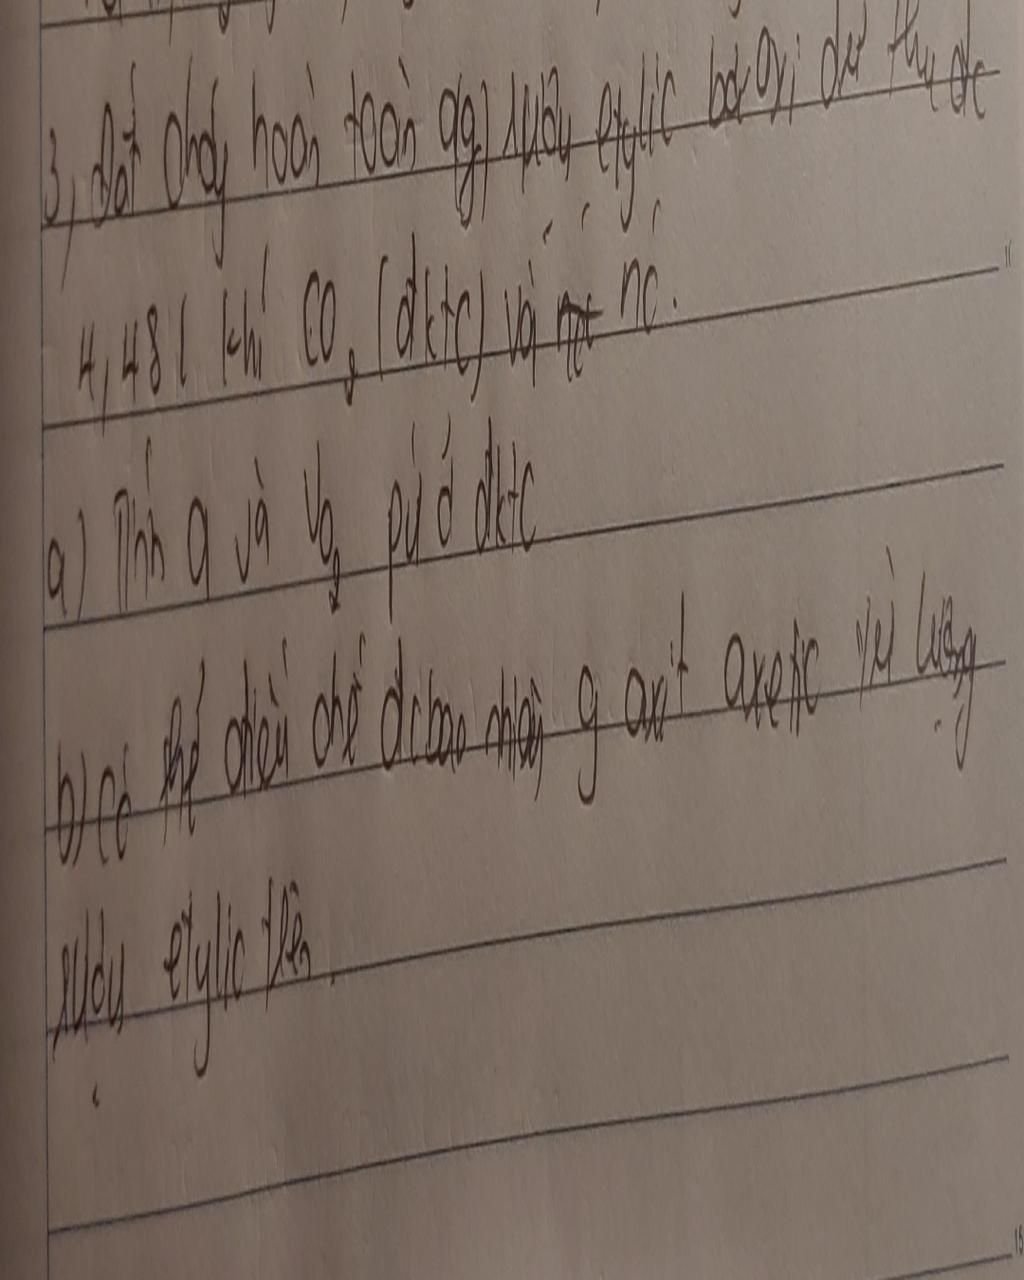 3, đốt cháy hoàn toàn a(g) rượu etylic bởi oxi dư thu đc
4,48 l khí CO2 (đktc) và nc.
a) Tính a và VO2 pứ ở đktc
b) Có thể điều chế đc bao nhiêu g axit axetic từ lượng
rượu etylic trên.